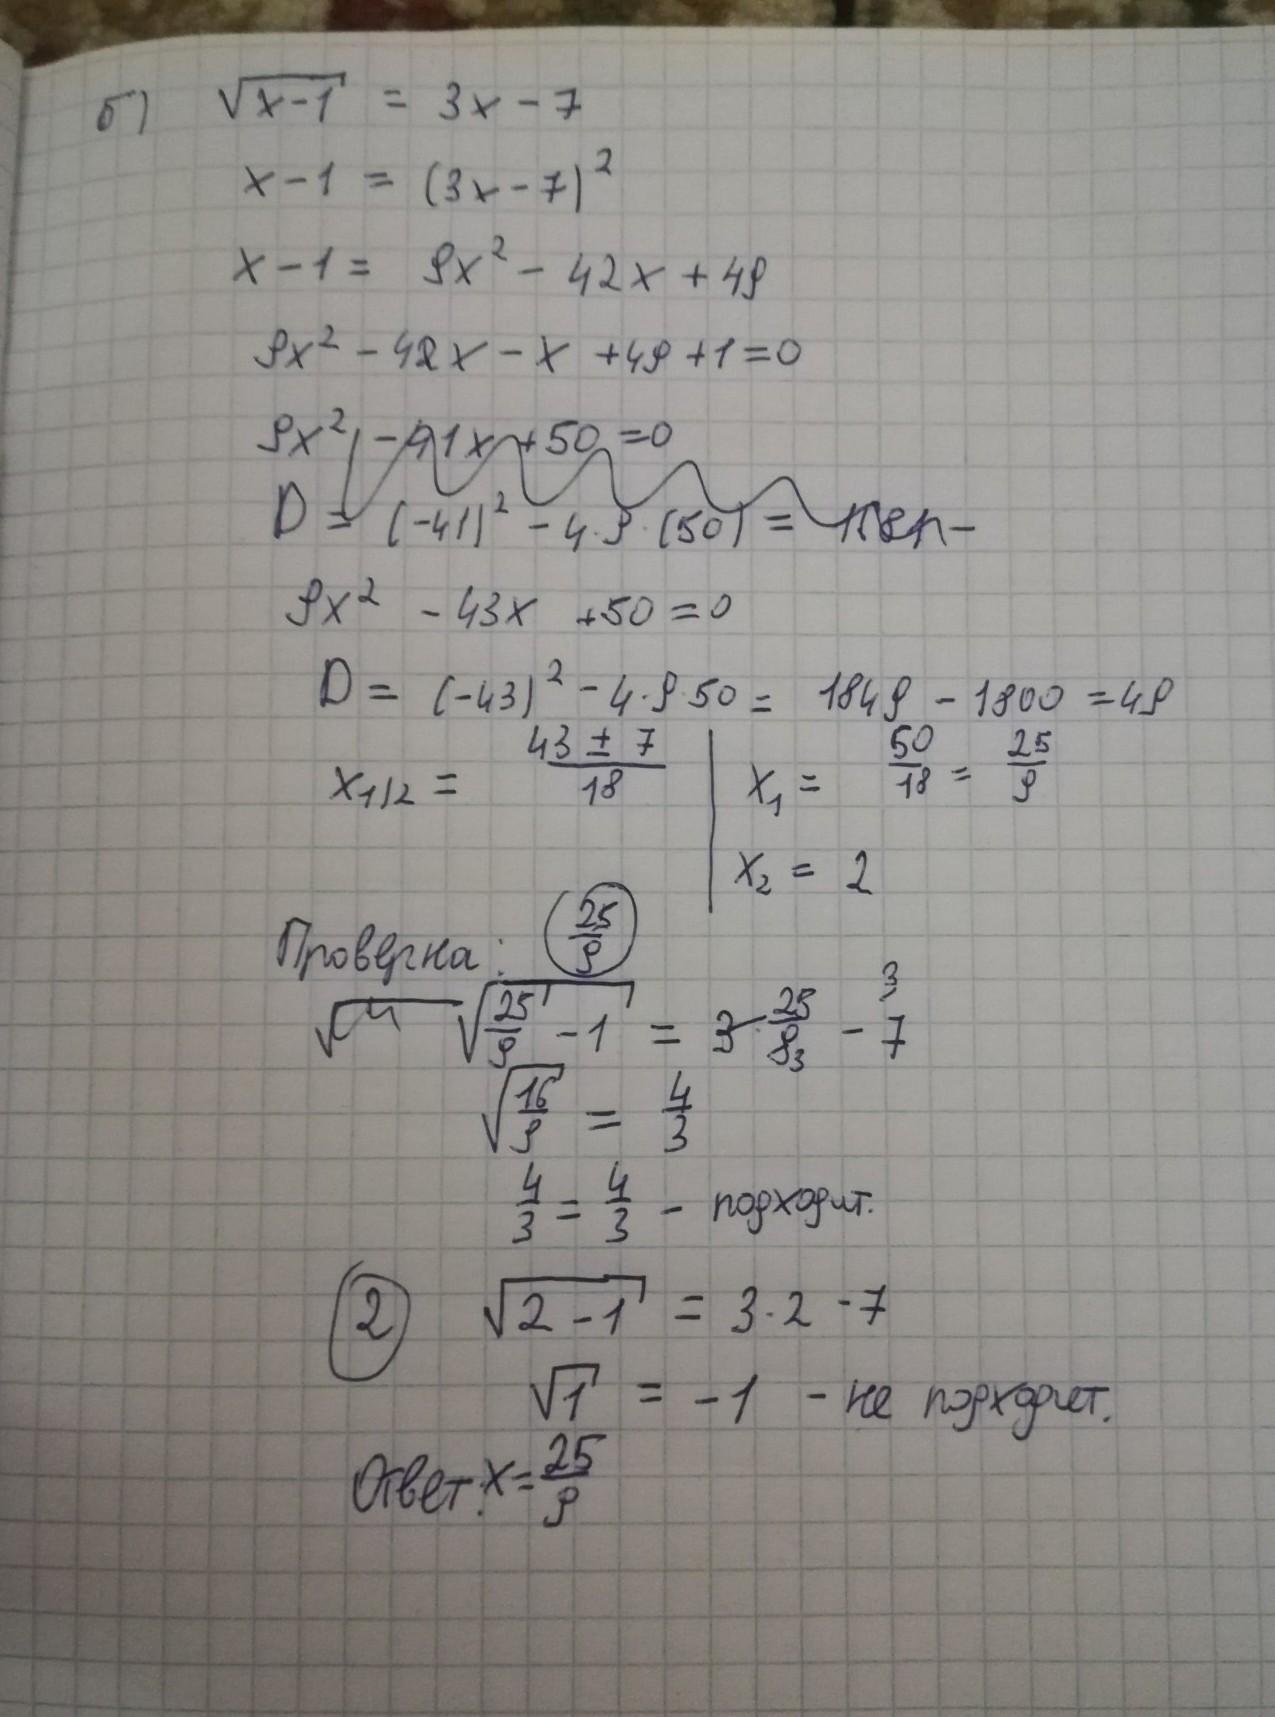 б) √(x-1) = 3x - 7
x - 1 = (3x - 7)²
x - 1 = 9x² - 42x + 49
9x² - 42x - x + 49 + 1 = 0
9x² - 41x + 50 = 0
D = (-41)² - 4·9·(50) =
9x² - 43x + 50 = 0
D = (-43)² - 4·9·50 = 1849 - 1800 = 49
x₁/₂ = (43 ± 7)/18 | x₁ = 50/18 = 25/9
x₂ = 2
Проверка: 25/9
√(25/9 - 1) = 3·25/9 3 - 7 3
√(16/9) = 4/3
4/3 = 4/3 - подходит.
2 √(2-1) = 3·2 - 7
√1 = -1 - не подходит.
Ответ: x = 25/9